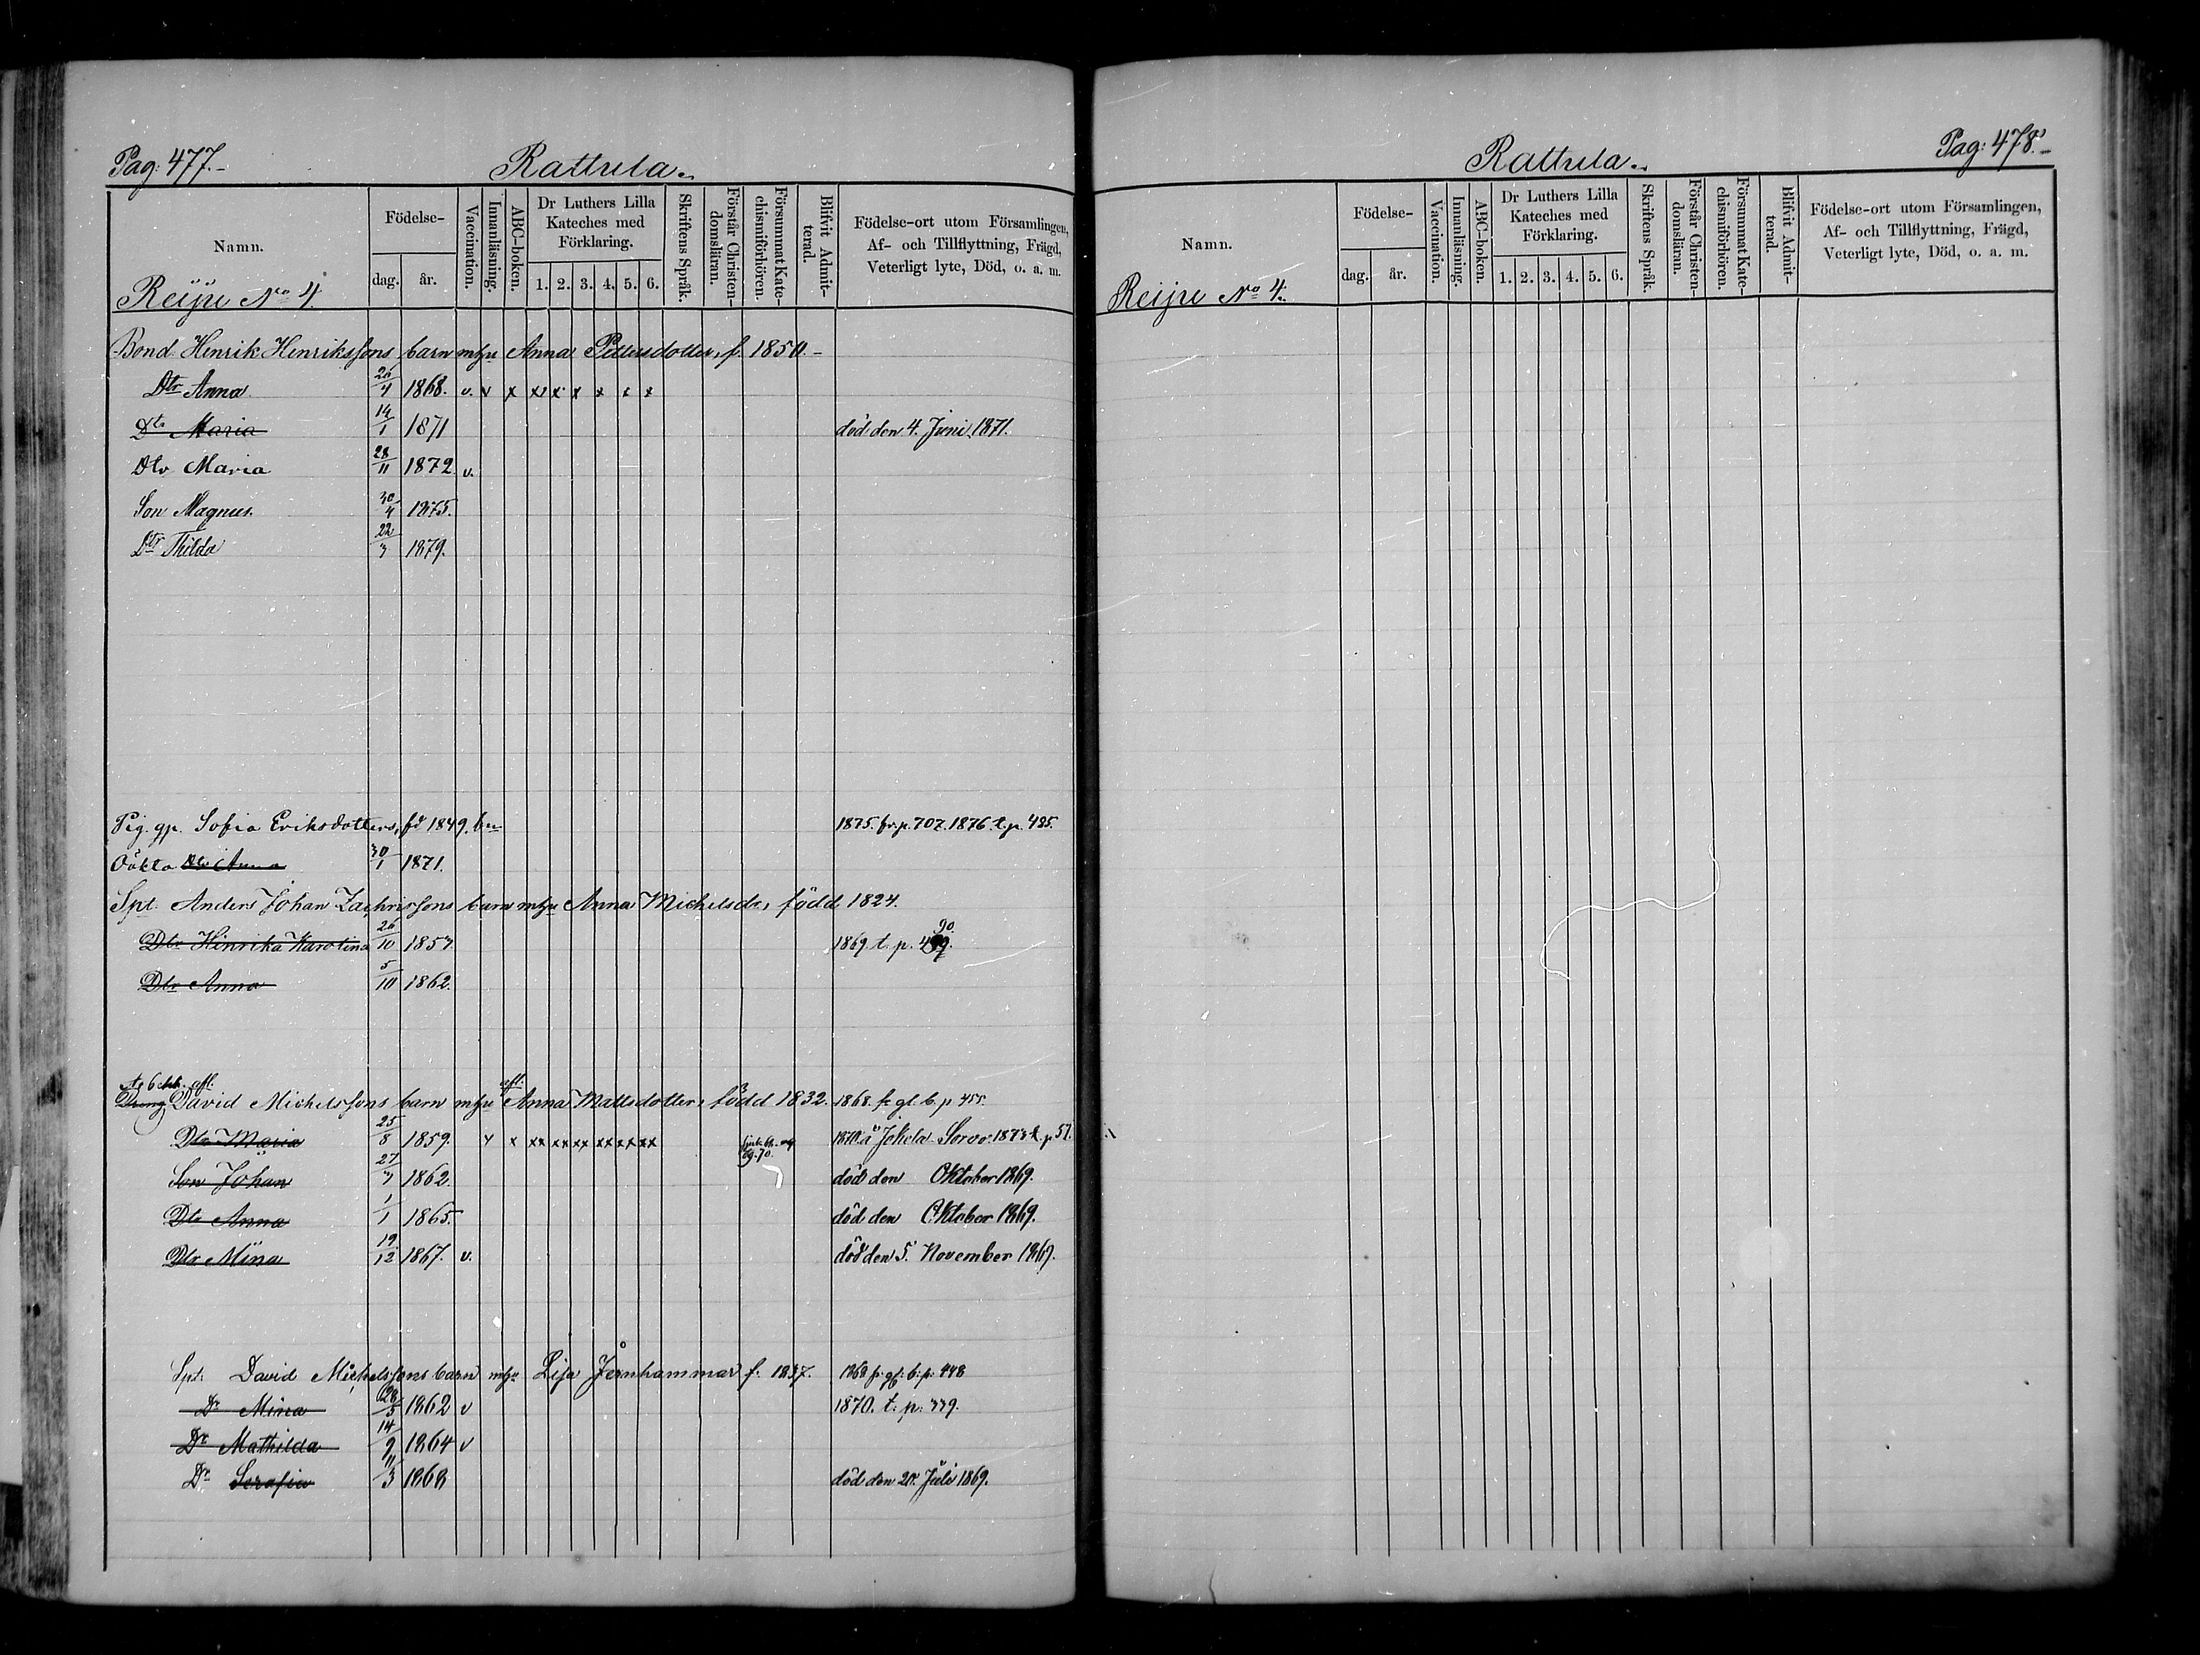 Pag: 477.
Rattula.
Namn.
Födelse-
dag.
år.
Vaccination.
Innanläsning.
ABC-boken.
Dr Luthers Lilla Kateches med Förklaring.
1. 2. 3. 4. 5. 6.
Skriftens Språk.
Förstår Christendomsläran.
Försummat Katechismiförhören.
Blifvit Admitterad.
Födelse-ort utom Församlingen,
Af- och Tillflyttning, Frägd,
Veterligt lyte, Död, o. a. m.
Reiju No 4.
Bond. Henrik Henrikssons barn m hu Anna Pettersdotter, f. 1850.
Dtr Anna 26/4 1868. v. x x xx x x x x x
Dtr Maria 14/1 1871 död den 4. Juni 1871.
Dtr Maria 28/11 1872 v.
Son Magnus. 30/4 1875.
Dtr Thilda 22/3 1879.
Pig. gp. Sofia Eriksdotters, fd 1849. bn 1875. fr. p. 707. 1876. t. p. 485.
Oäkta Dtr Anna 30/1 1871.
Spt. Anders Johan Zachrissons barn m hu Anna Michelsdr, född 1824.
Dtr Hinrika Karolina 26/10 1857. 1869. t. p. 490.
Dtr Anna 5/10 1862.
Dreng David Michelssons barn m hu Anna Mattsdotter, född 1832. 1868. fr. gl. b. p 455.
Dtr Maria 25/8 1859. x x xx xx xx xx x xx 1870. å Jokela Sorvo. 1873 t. p 57.
Son Johan 27/3 1862. död den Oktober 1869.
Dtr Anna 1/1 1865. död den Oktober 1869.
Dtr Mina 19/12 1867. v. död den 5. November 1869.
Spt. David Michelssons barn m hu Lisa Jernhammar f. 1837. 1868 fr. gl. b. p. 448
Dr Mina 28/5 1862 v 1870. t. p. 339.
Dr Mathilda 14/9 1864 v
Dr Serafia 11/3 1868 död den 20. Juli 1869.
Pag: 478.
Rattula.
Namn.
Födelse-
dag.
år.
Vaccination.
Innanläsning.
ABC-boken.
Dr Luthers Lilla Kateches med Förklaring.
1. 2. 3. 4. 5. 6.
Skriftens Språk.
Förstår Christendomsläran.
Försummat Katechismiförhören.
Blifvit Admitterad.
Födelse-ort utom Församlingen,
Af- och Tillflyttning, Frägd,
Veterligt lyte, Död, o. a. m.
Reiju No 4.